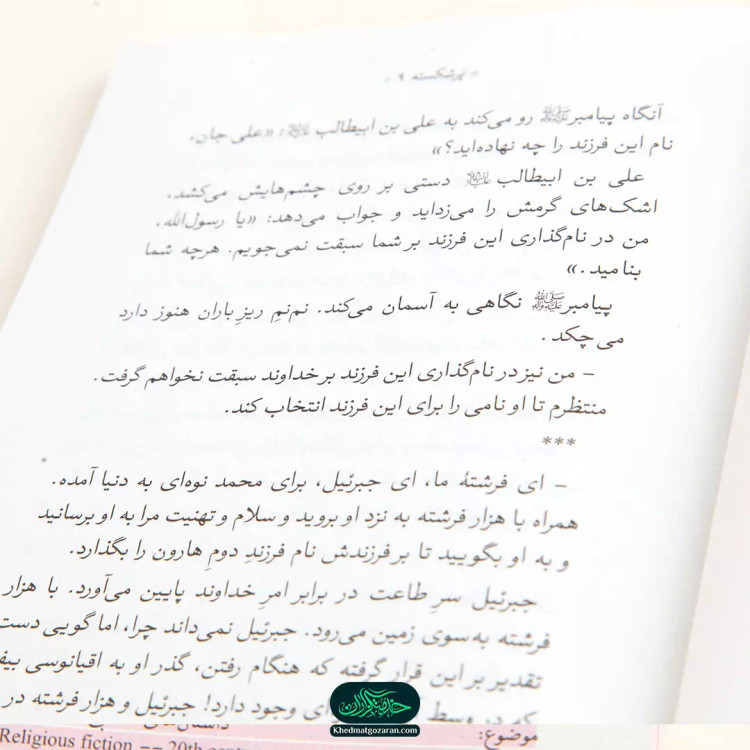 پرشکسته ۹
آنگاه پیامبرﷺ رو می‌کند به علی بن ابیطالب: «علی جان،
نام این فرزند را چه نهاده‌اید؟»
علی بن ابیطالب دستی بر روی چشم‌هایش می‌کشد،
اشک‌های گرمش را می‌زداید و جواب می‌دهد: «یا رسول‌الله،
من در نام‌گذاری این فرزند بر شما سبقت نمی‌جویم. هرچه شما
بنامید.»
پیامبرﷺ نگاهی به آسمان می‌کند. نم‌نمِ ریزِ باران هنوز دارد
می‌چکد.
- من نیز در نام‌گذاری این فرزند بر خداوند سبقت نخواهم گرفت.
منتظرم تا او نامی را برای این فرزند انتخاب کند.
***
- ای فرشتهٔ ما، ای جبرئیل، برای محمد نوه‌ای به دنیا آمده.
همراه با هزار فرشته به نزد او بروید و سلام و تهنیت مرا به او برسانید
و به او بگویید تا بر فرزندش نام فرزندِ دومِ هارون را بگذارد.
جبرئیل سرِ طاعت در برابر امرِ خداوند پایین می‌آورد. با هزار
فرشته به‌سوی زمین می‌رود. جبرئیل نمی‌داند چرا، اما گویی دست
تقدیر بر این قرار گرفته که هنگام رفتن، گذر او به اقیانوسی بیف
که در وسط ای وجود دارد! جبرئیل و هزار فرشته در
خدمتگزاران
Khedmatgozaran.com
موضوع:
Religious fiction -- 20th